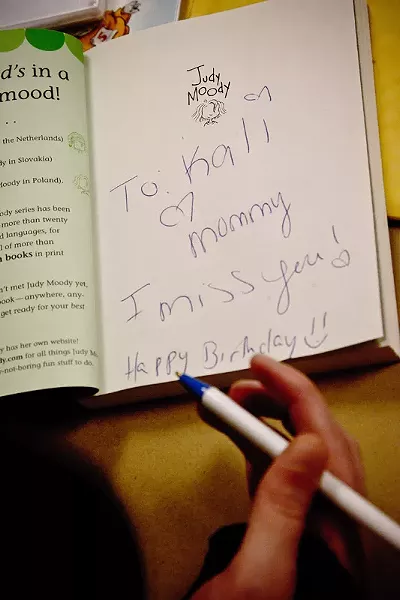 d's in a
mood!
the Netherlands)
dy in Slovakia)
Moody in Poland).
ody series has been
more than twenty
d languages, for
l of more than
books in print
n't met Judy Moody yet,
ook—anywhere, any-
get ready for your best
has her own website!
dy.com for all things Judy M
-not-boring fun stuff to do.
Judy
Moody
To: Kali
mommy
I miss you!
Happy Birthday!!